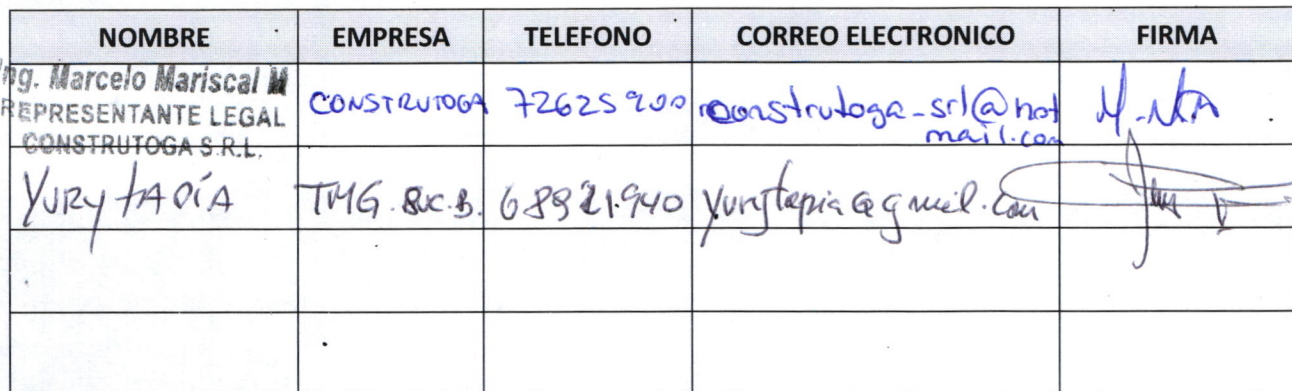 NOMBRE EMPRESA TELEFONO CORREO ELECTRONICO FIRMA
Ing. Marcelo Mariscal M
REPRESENTANTE LEGAL
CONSTRUTOGA S.R.L.
CONSTRUTOGA 72625900 construtoga_srl@hot
mail.com
YURY TAPIA TMG. 68921940 yurytapia@gmail.com